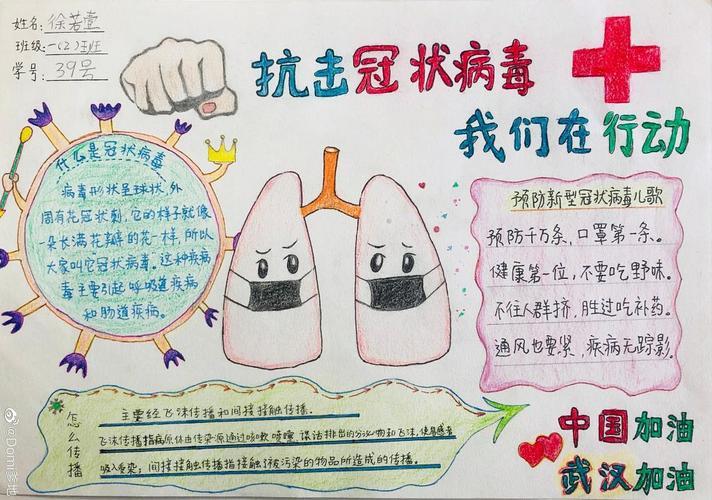 姓名:徐若壹
班级:一(2)班
学号:39号
抗击冠状病毒
我们在行动
什么是冠状病毒
病毒形状呈球状,外
周有花冠状刺,它的样子就像
一朵长满花瓣的花一样,所以
大家叫它冠状病毒。这种疾病
毒主要引起呼吸道疾病
和肠道疾病。
预防新型冠状病毒儿歌
预防千万条,口罩第一条。
健康第一位,不要吃野味。
不往人群挤,胜过吃补药。
通风也要紧,疾病无踪影。
怎么传播
主要经飞沫传播和间接接触传播。
飞沫传播指病原体由传染源通过咳嗽、喷嚏、谈话排出的分泌物和飞沫,使易感者
吸入受染;间接接触传播指接触被污染的物品所造成的传播。
中国加油
武汉加油